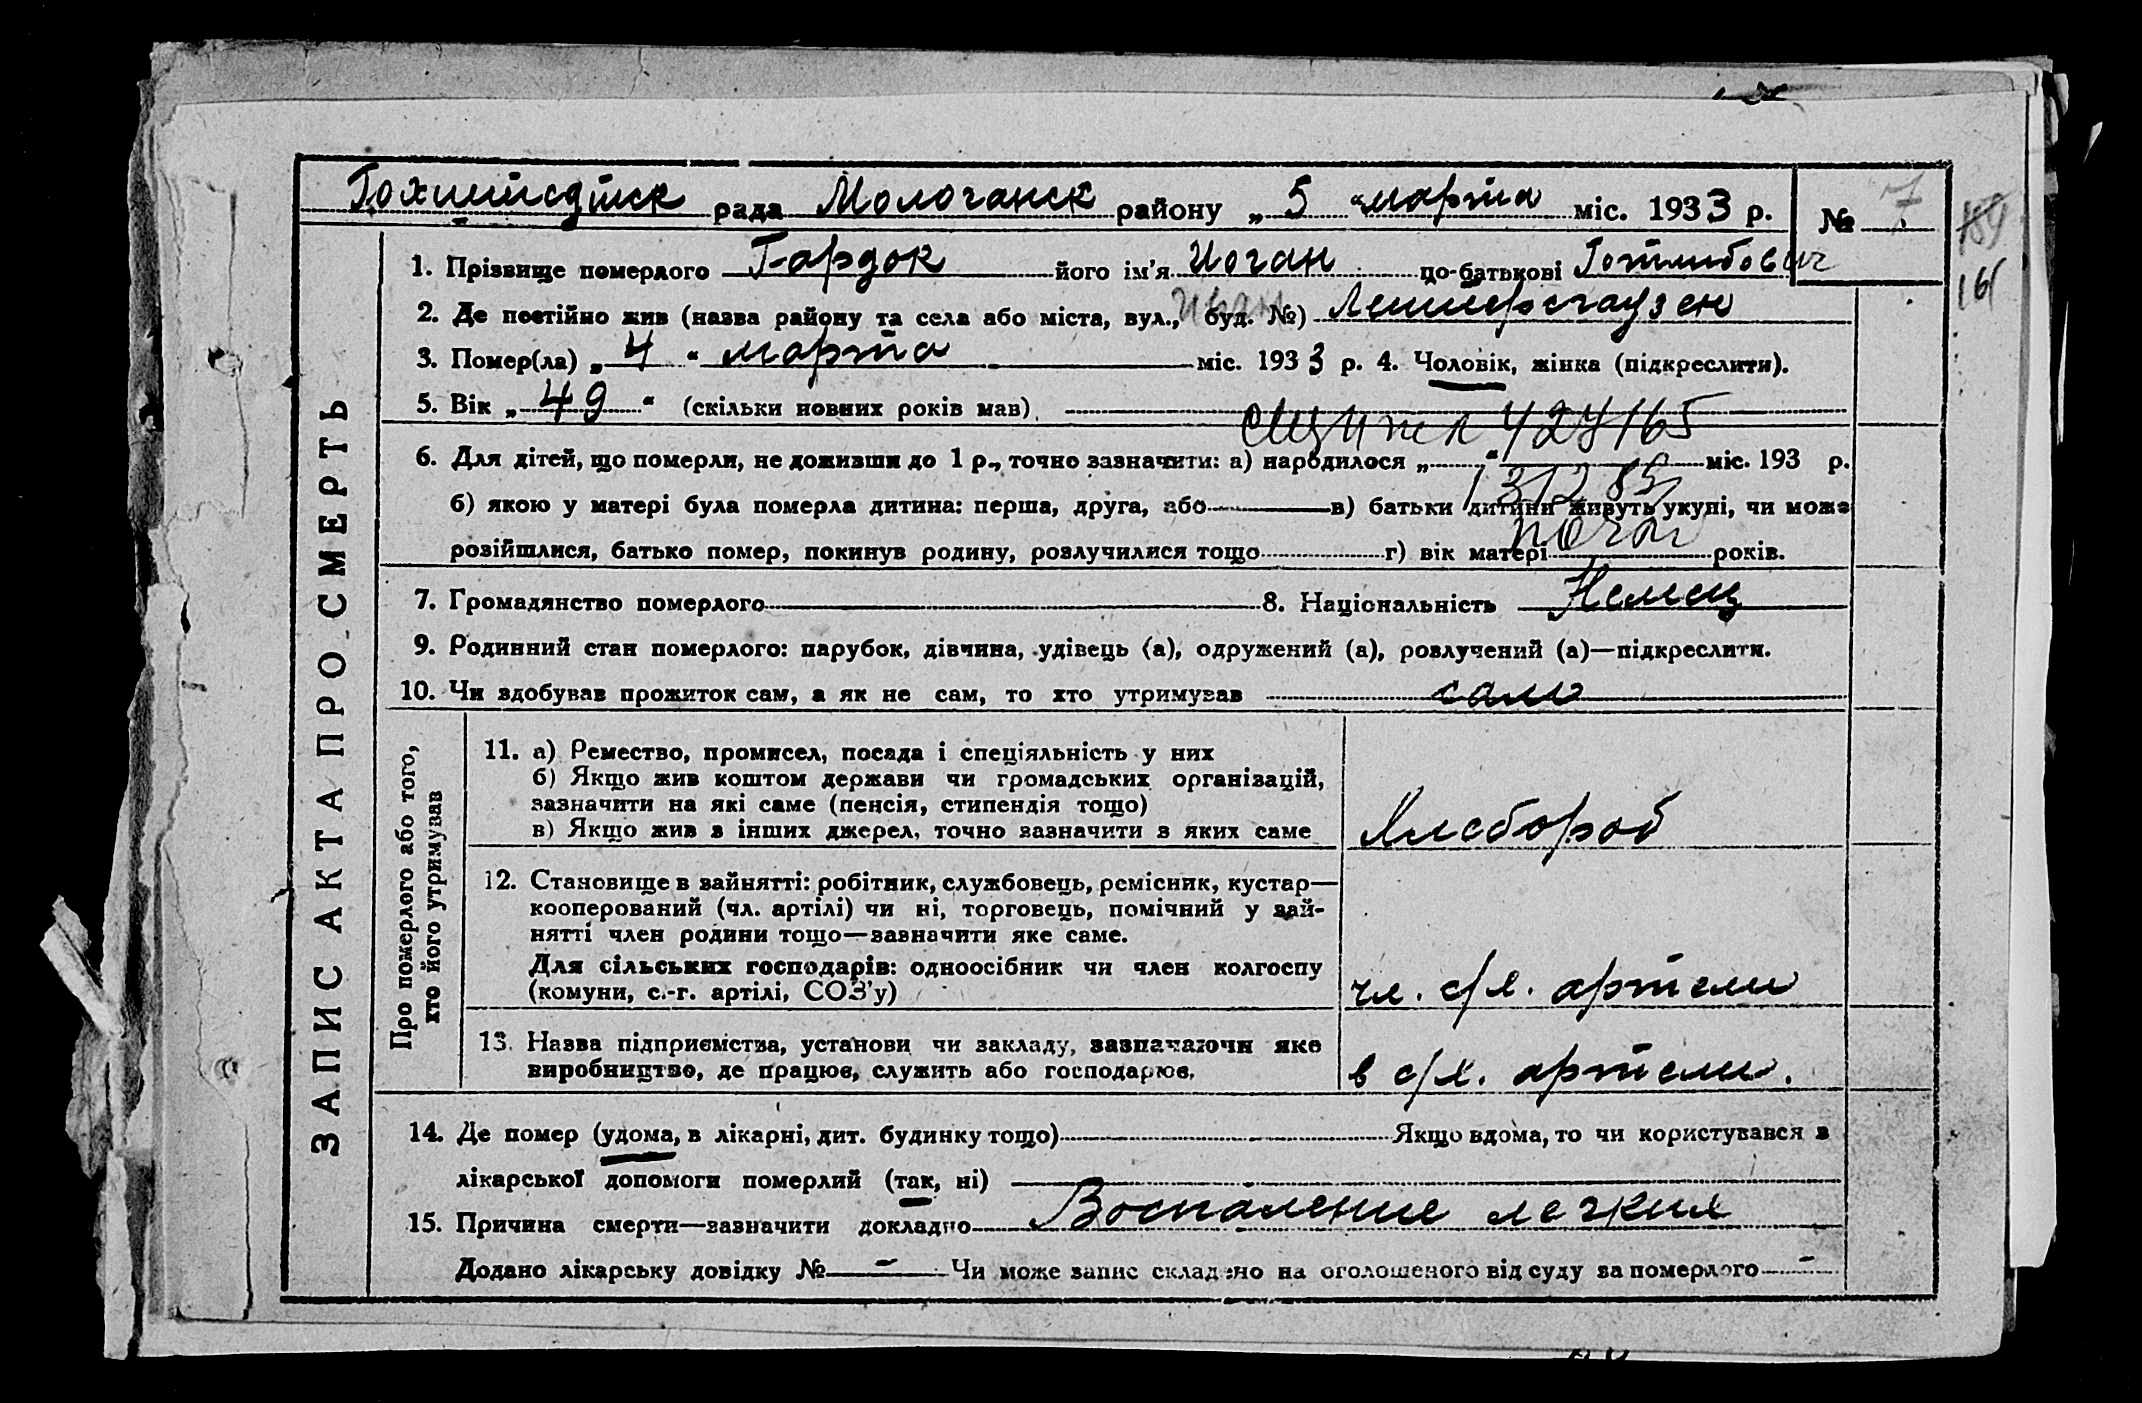 Гохштедтск рада Молочанск району „ 5 “ марта міс. 1933 р. № 7
1. Прізвище померлого Гардок його ім’я Иоган по-батькові Готлибович
Иван
2. Де постійно жив (назва району та села або міста, вул., буд. №)
3. Помер(ла) „ 4 “ марта міс. 1933 р. 4. Чоловік, жінка (підкреслити).
5. Вік „ 49 “ (скільки повних років мав)
427165
6. Для дітей, що померли, не доживши до 1 р., точно зазначити: а) народилося „ “ міс. 193 р.
б) якою у матері була померла дитина: перша, друга, або в) батьки дитини живуть укупі, чи може
розійшлися, батько помер, покинув родину, розлучилися тощо г) вік матері років.
7. Громадянство померлого 8. Національність Немец
9. Родинний стан померлого: парубок, дівчина, удівець (а), одружений (а), розлучений (а)—підкреслити.
10. Чи здобував прожиток сам, а як не сам, то хто утримував сам
ЗАПИС АКТА ПРО СМЕРТЬ
Про померлого або того,
хто його утримував
11. а) Ремество, промисел, посада і спеціяльність у них
б) Якщо жив коштом держави чи громадських організацій,
зазначити на які саме (пенсія, стипендія тощо)
в) Якщо жив з інших джерел, точно зазначити з яких саме
Хлебороб
12. Становище в зайнятті: робітник, службовець, ремісник, кустар—
кооперований (чл. артілі) чи ні, торговець, помічний у зай-
нятті член родини тощо—зазначити яке саме.
Для сільських господарів: одноосібник чи член колгоспу
(комуни, с.-г. артілі, СОЗ’у)
чл. с/х. артели
13. Назва підприємства, установи чи закладу, зазначаючи яке
виробництво, де працює, служить або господарює.
в с/х. артели.
14. Де помер (удома, в лікарні, дит. будинку тощо) Якщо вдома, то чи користувався з
лікарської допомоги померлий (так, ні)
15. Причина смерти—зазначити докладно Воспаление легких
Додано лікарську довідку № – Чи може запис складено на оголошеного від суду за померлого –